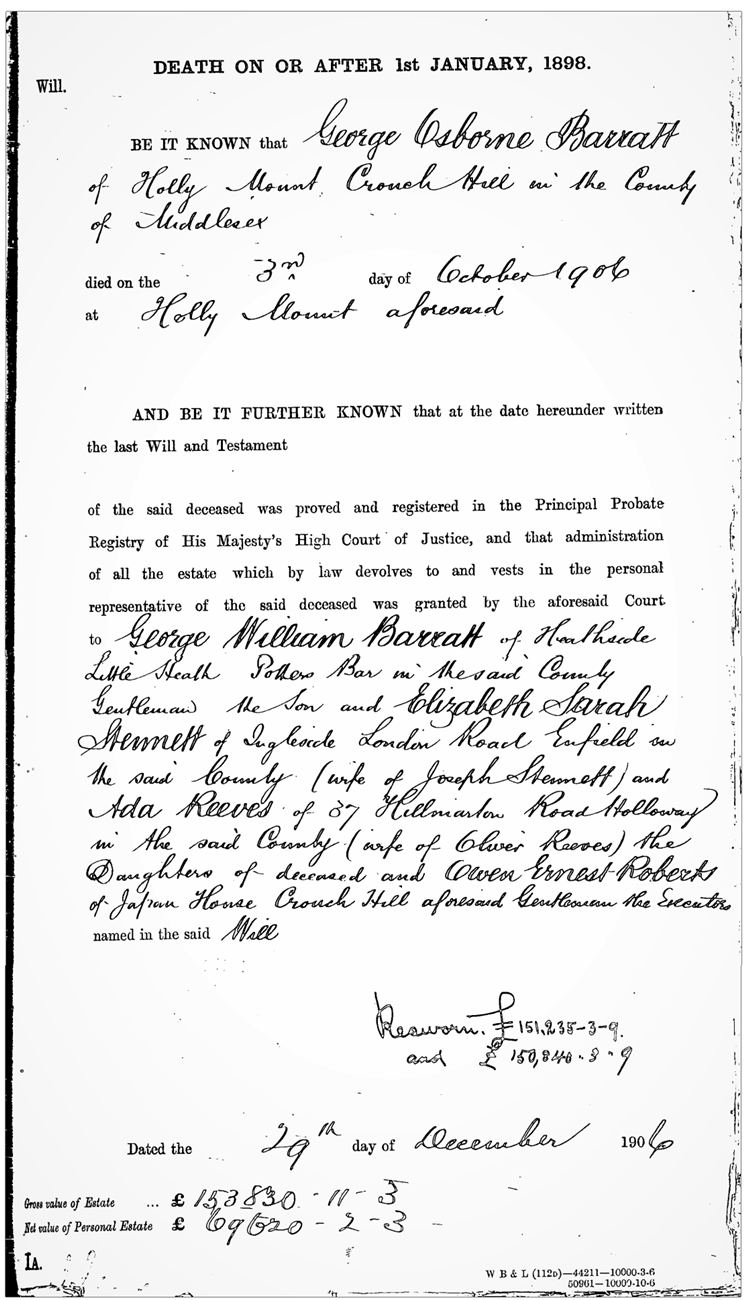 DEATH ON OR AFTER 1st JANUARY, 1898.
Will.
BE IT KNOWN that George Osborne Barratt
of Holly Mount, Crouch Hill in the County
of Middlesex
died on the 3rd day of October 1906
at Holly Mount aforesaid
AND BE IT FURTHER KNOWN that at the date hereunder written
the last Will and Testament
of the said deceased was proved and registered in the Principal Probate
Registry of His Majesty's High Court of Justice, and that administration
of all the estate which by law devolves to and vests in the personal
representative of the said deceased was granted by the aforesaid Court
to George William Barratt of Heathside
Little Heath Potters Bar in the said County
Gentleman the Son and Elizabeth Sarah
Stennett of Ingleside London Road Enfield in
the said County (wife of Joseph Stennett) and
Ada Reeves of 37 Hillmarton Road Holloway
in the said County (wife of Oliver Reeves) the
Daughters of deceased and Owen Ernest Roberts
of Japan House Crouch Hill aforesaid Gentleman the Executors
named in the said Will
Resworn. £151,235-3-9.
and £150,840-3-9
Dated the 29th day of December 1906
Gross value of Estate ... £ 153830-11-3
Net value of Personal Estate £ 69620-2-3
IA.
W B & L (112D)—44211—10000-3-6
50961—10000-10-6